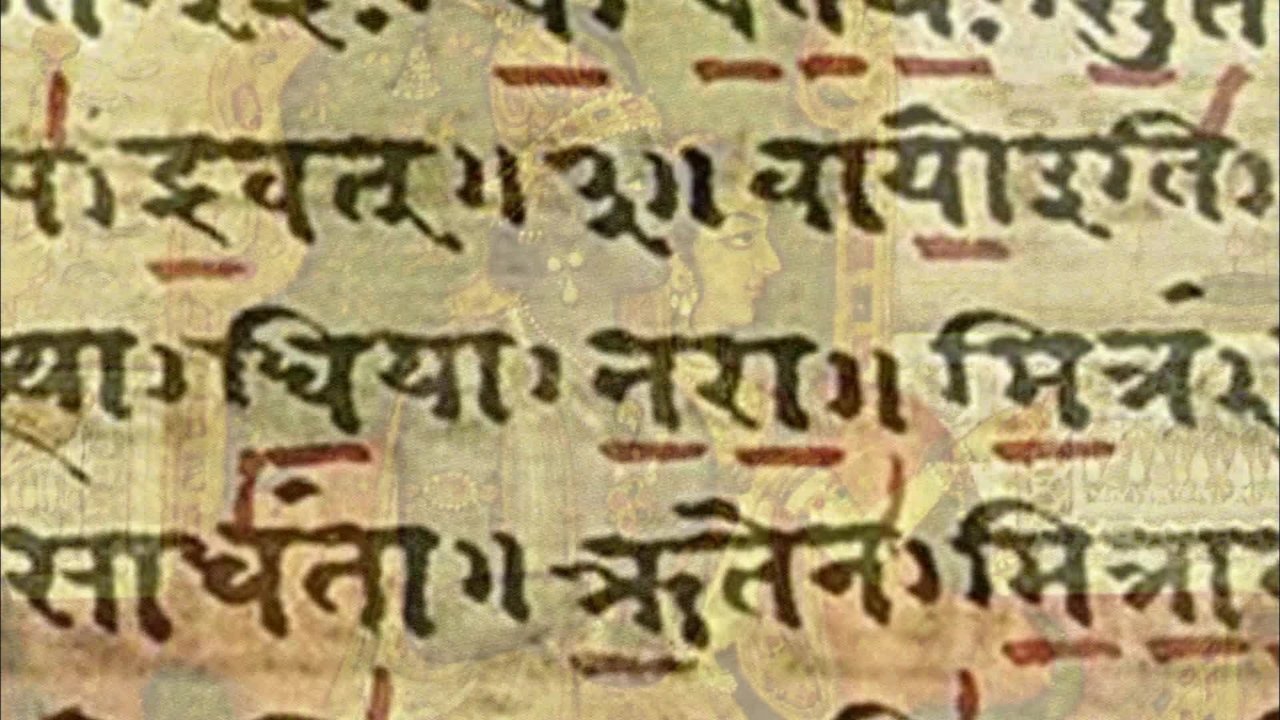 प । द्रवत् ॥ ३ ॥ वायो इति ।
त्था । धिया । नरा ॥ मित्रं ।
साधंता ॥ ऋतेन । मित्रा